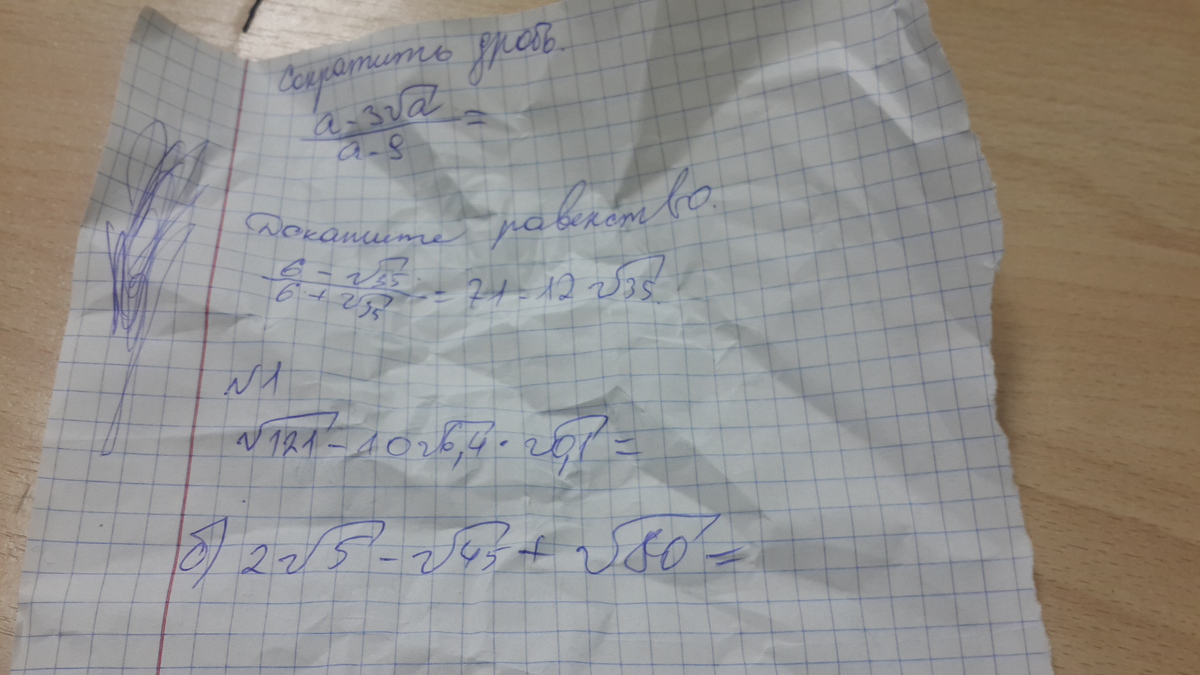 Сократить дробь.
a - 3√a / a - 9 =
Докажите равенство.
6 - √35 / 6 + √35 = 71 - 12√35
№1
√121 - 10√6,4 · √0,1 =
б) 2√5 - √45 + √80 =